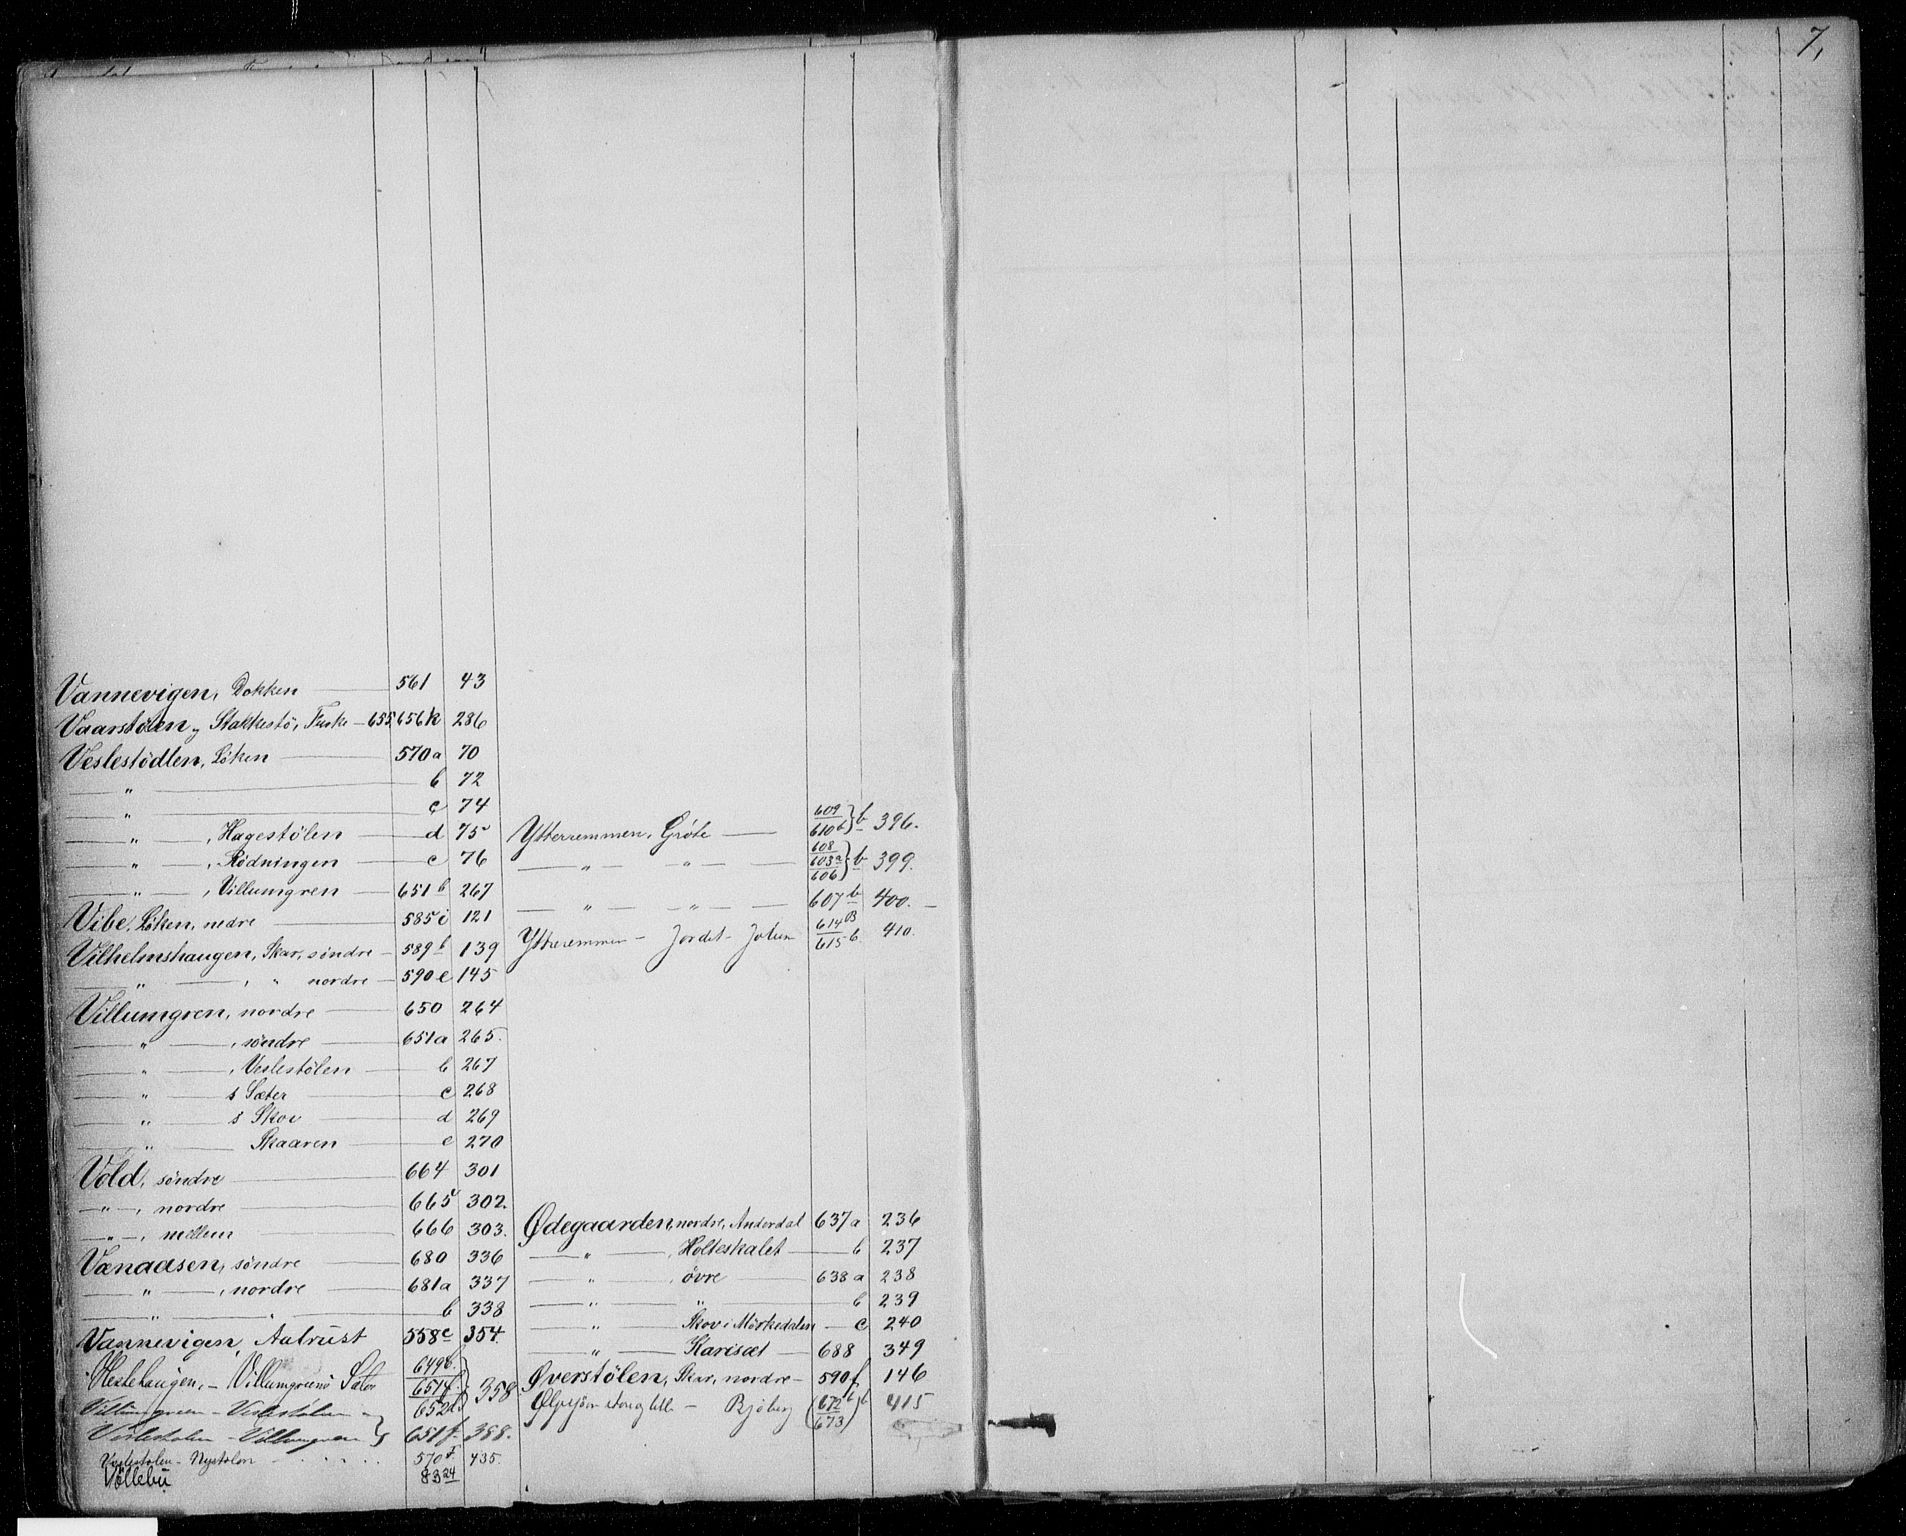 7,
Vannevigen, Dokken 561 43
Vaarstølen, Stakkestø, Fiske 655,656k 286
Veslestödlen, Løken 570a 70
— " — b 72
— " — c 74
— " —, Hagestølen d 75
— " —, Rödningen e 76
— " —, Villumgren 651b 267
Vibe, Løken, nedre 585i 121
Vilhelmshaugen, Skar, søndre 589b 139
— " —, " nordre 590e 145
Villumgren, nordre 650 264
— " —, søndre 651a 265.
— " —, Veslestølen b 267
— " — s Sæter c 268
— " — s Skov d 269
— " — Skaaren e 270
Vold, søndre 664 301
— " —, nordre 665 302.
— " —, mellem 666 303.
Vænaasen, søndre 680 336
— " —, nordre 681a 337
— " — " b 338
Vannevigen, Aabrust 558c 354.
Hestehaugen, – Villumgrens Sæter 649b. 651f. 652b. 358
Villumgreen – Veslestølen
Veslestolen – Villumgreen 651f. 388.
Veslestolen – Nystolen 570F 435.
Völlebu 83 24
Ytterremmen, Gröte 609 610b } b 396.
— " — " — 608 603a 606 } b 399.
— " — " — 607b 400. —
Ytterremmen – Jordet – 614B 615b 410.
Ødegaarden, nordre, Anderdal 637a 236
— " —, Holteskalet b 237
— " —, övre 638a 238
— " — " b 239
— " — Skov i Mörkedalen c 240
— " — Karisæt 688 349
Øverstølen, Skar, nordre 590f 146
– Bjöberg (672b 673) b 415